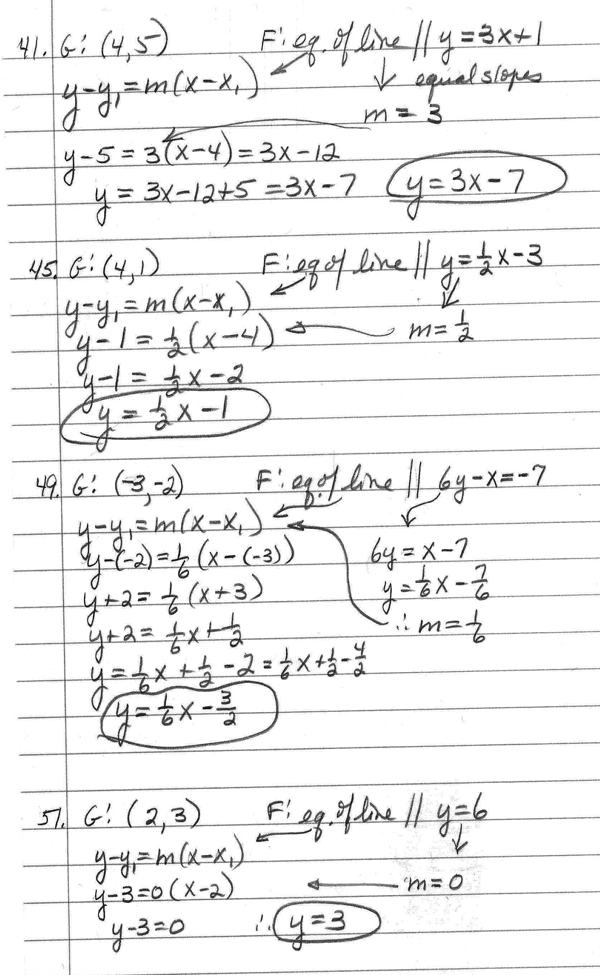 41. G: (4,5) F: eq. of line // y=3x+1
y-y₁=m(x-x₁) equal slopes
m = 3
y-5=3(x-4)=3x-12
y=3x-12+5=3x-7 y=3x-7
45. G: (4,1) F: eq. of line // y=½x-3
y-y₁=m(x-x₁)
y-1=½(x-4) m=½
y-1=½x-2
y=½x-1
49. G: (-3,-2) F: eq. of line // 6y-x=-7
y-y₁=m(x-x₁)
y-(-2)=1/6(x-(-3)) 6y=x-7
y+2=1/6(x+3) y=1/6x-7/6
y+2=1/6x+1/2 ∴ m=1/6
y=1/6x+1/2-2=1/6x+1/2-4/2
y=1/6x-3/2
51. G: (2,3) F: eq. of line // y=6
y-y₁=m(x-x₁)
y-3=0(x-2) m=0
y-3=0 ∴ y=3